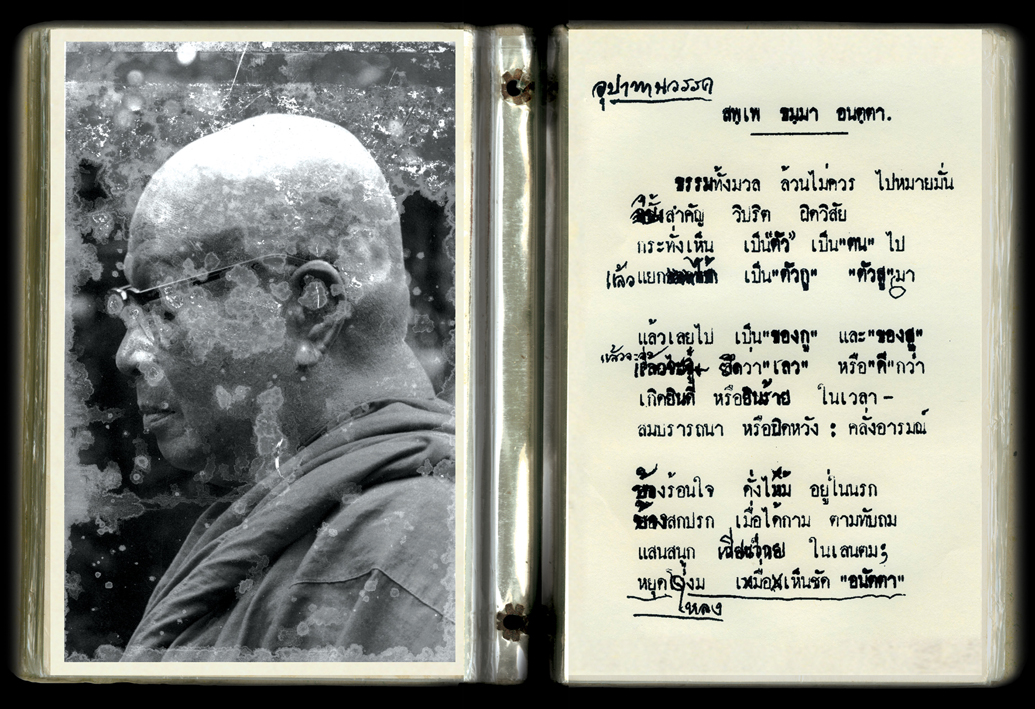 อุปาทานวรรค
สพฺเพ ธมฺมา อนตฺตา.
ธรรมทั้งมวล ล้วนไม่ควร ไปหมายมั่น
สำคัญ วิปริต ผิดวิสัย
กระทั่งเห็น เป็น"ตัว" เป็น"ตน" ไป
แล้วแยก เป็น"ตัวกู" "ตัวสู"มา
แล้วเลยไป เป็น"ของกู" และ"ของสู"
ยึดว่า"เลว" หรือ"ดี"กว่า
เกิดยินดี หรือยินร้าย ในเวลา-
สมปรารถนา หรือผิดหวัง : คลั่งอารมณ์
บ้างร้อนใจ ดั่งไหม้ อยู่ในนรก
บ้างสกปรก เมื่อได้กาม ตามทับถม
แสนสนุก ในเลนตม;
หยุดโง่งม เมื่อเห็นชัด "อนัตตา"
หลง